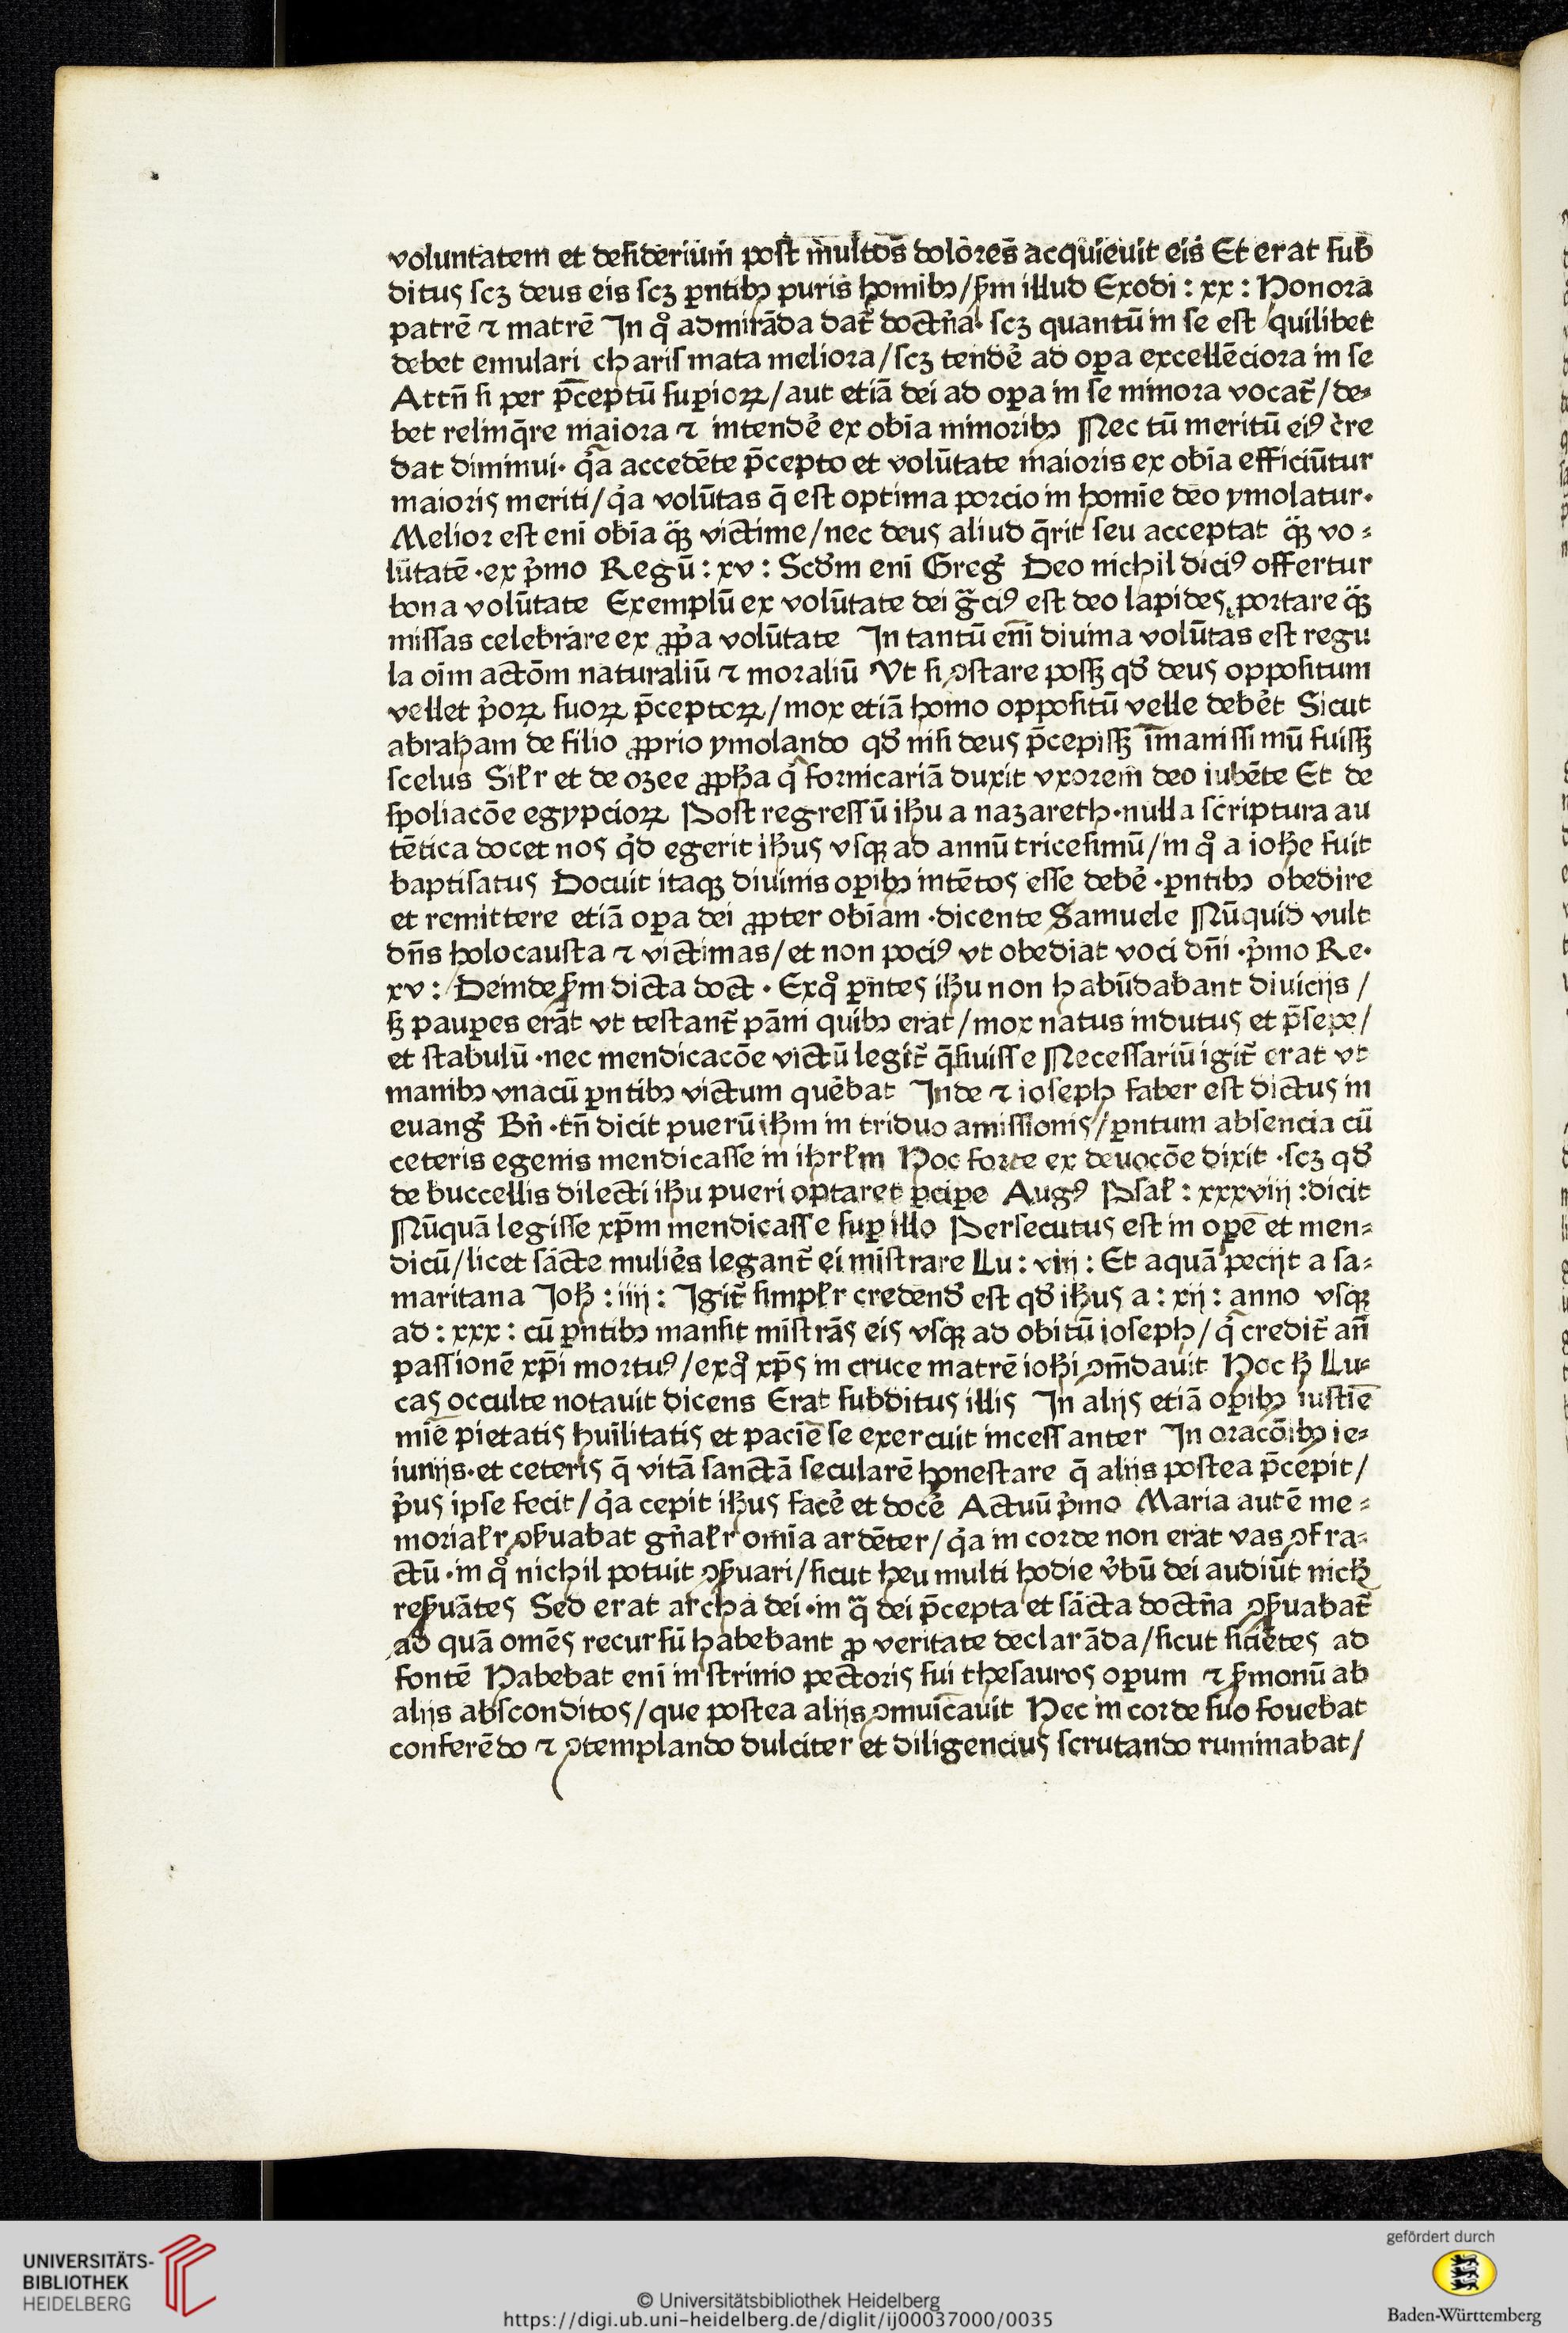 voluntatem et desiderium̄ post m̄ultos̄ dolores̄ acquieuit eis Et erat sub
ditus scꝫ deus eis scꝫ ꝑntibꝫ puris homibꝫ/ẜm illud Exodi : xx : Honora
patrē ⁊ matrē In qͦ admirāda dat᷑ doctn̄a· scꝫ quantū in se est quilibet
debet emulari charismata meliora/scꝫ tendē ad oꝑa excellēciora in se
Attn̄ si per p̄ceptū suꝑioꝝ/aut etiā dei ad oꝑa in se minora vocat᷑/de⸗
bet relinq̄re maiora ⁊ intendē ex obīa minoribꝫ Nec tū meritū eiꝰ c̄re
dat diminui· qͥa accedēte p̄cepto et volūtate maioris ex obīa efficiūtur
maioris meriti/qͥa volūtas q̄ est optima porcio in homīe deo ymolatur·
Melior est enī obīa qͣꝫ victime/nec deus aliud q̄rit seu acceptat qͣꝫ vo⸗
lūtatē ·ex pͥmo Regū : xv : Scd̄m enī Greḡ Deo nichil diciꝰ offertur
bona volūtate Exemplū ex volūtate dei gͣciꝰ est deo lapides portare qͣꝫ
missas celebrare ex ꝓpͥa volūtate In tantū enī diuina volūtas est regu
la oīm actōm naturaliū ⁊ moraliū Vt si ꝯstare possꝫ qd̄ deus oppositum
vellet pͥoꝝ suoꝝ p̄ceptoꝝ/mox etiā homo oppositū velle debēt Sicut
abraham de filio ꝓprio ymolando qd̄ nisi deus p̄cepissꝫ īmanissimū fuissꝫ
scelus Silr̄ et de ozee ꝓph̄a qͥ fornicariā duxit vxorem deo iubēte Et de
spoliacōe egypcioꝝ Post regressū ih̄u a nazareth·nulla scriptura au
tētica docet nos qͥd egerit ih̄us vsqꝫ ad annū tricesimū/in qͦ a ioh̄e fuit
baptisatus Docuit itaqꝫ diuinis oꝑibꝫ intētos esse debē ·ꝑntibꝫ obedire
et remittere etiā oꝑa dei ꝓpter obīam ·dicente Samuele Nūquid vult
dn̄s holocausta ⁊ victimas/et non pociꝰ vt obediat voci dn̄i ·pͥmo Re·
xv : Deinde ẜm dicta doct · Exqͦ ꝑntes ih̄u non habūdabant diuicijs /
sꝫ pauꝑes erāt vt testant᷑ pāni quibꝫ erat/mox natus indutus et p̄sepe/
et stabulū ·nec mendicacōe victū legit᷑ q̄siuisse Necessariū igit᷑ erat vt
manibꝫ vnacū ꝑntibꝫ victum quēbat Inde ⁊ ioseph faber est dictus in
euanḡ Bn̄ ·tn̄ dicit puerū ih̄m in triduo amissionis/ꝑntum absencia cū
ceteris egenis mendicasse in ihrl̄m Hoc forte ex deuocōe dixit ·scꝫ qd̄
de buccellis dilecti ih̄u pueri optaret ꝑciꝑe Augꝰ Psal̄ : xxxviij :dicit
Nūquā legisse xp̄m mendicasse suꝑ illo Persecutus est in opē et men⸗
dicū/licet sācte muliēs legant᷑ ei mīstrare Lu : viij : Et aquā pecijt a sa⸗
maritana Joh̄ : iiij : Igit᷑ simpl̄r credend̄ est qd̄ ih̄us a : xij : anno vsqꝫ
ad : xxx : cū ꝑntibꝫ mansit mīstrās eis vsqꝫ ad obitū ioseph/qͥ credit᷑ an̄
passionē xp̄i mortuꝰ/exqͦ xp̄s in cruce matrē ioh̄i ꝯm̄dauit Hoc sꝫ Lu⸗
cas occulte notauit dicens Erat subditus illis In alijs etiā oꝑibꝫ iustīe
mīe pietatis hūilitatis et paciē se exercuit incessanter In oracōibꝫ ie⸗
iunijs·et ceteris q̄ vitā sanctā secularē honestare q̄ alijs postea p̄cepit/
pͥus ipse fecit/qͥa cepit ih̄us facē et docē Actuū pͥmo Maria autē me⸗
morial̄r ꝯẜuabat gn̄al̄r omīa ardēter/qͥa in corde non erat vas ꝯfra⸗
ctū·in qͦ nichil potuit ꝯẜuari/sicut heu multi hodie v̄bū dei audiūt nich̄
reẜuātes Sed erat archa dei·in qͣ dei p̄cepta et sācta doctn̄a ꝯẜuabat᷑
ad quā omēs recursū habebant ꝓ veritate declarāda/sicut siciētes ad
fontē Habebat enī in strinio pectoris sui thesauros oꝑum ⁊ ẜmonū ab
alijs absconditos/que postea alijs ꝯmuīcauit Hec in corde suo fouebat
conferēdo ⁊ ꝯtemplando dulciter et diligencius scrutando ruminabat/
UNIVERSITÄTS-
BIBLIOTHEK
HEIDELBERG
© Universitätsbibliothek Heidelberg
https://digi.ub.uni-heidelberg.de/diglit/ij00037000/0035
gefördert durch
Baden-Württemberg